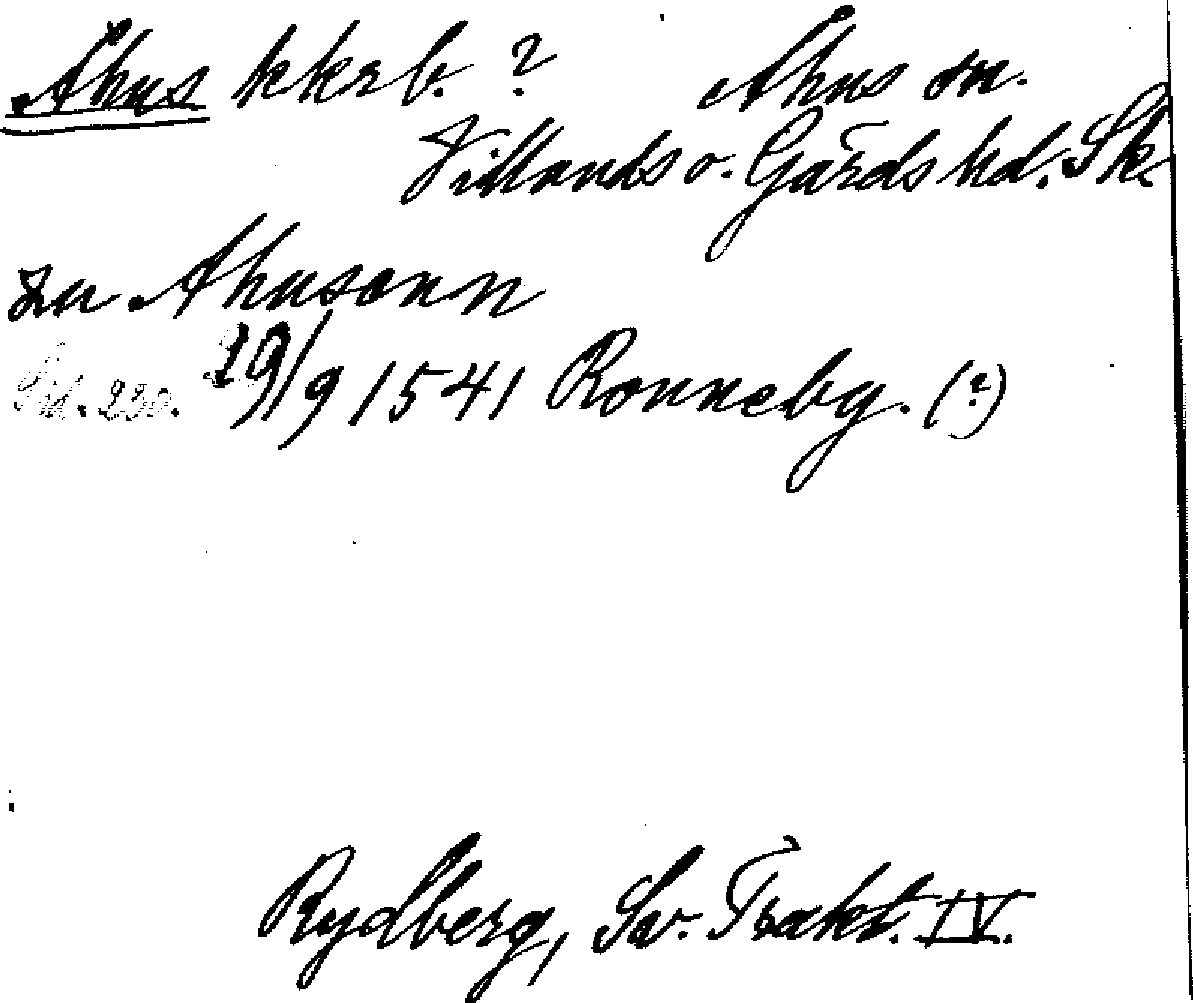 Åhus kkrb. ? Åhus sn.
Villands o. Gärds hd. Sk.
zu Ahusann
Sid. 230. 29/9 1541 Ronneby. (?)
Rydberg, Sv. Trakt. IV.